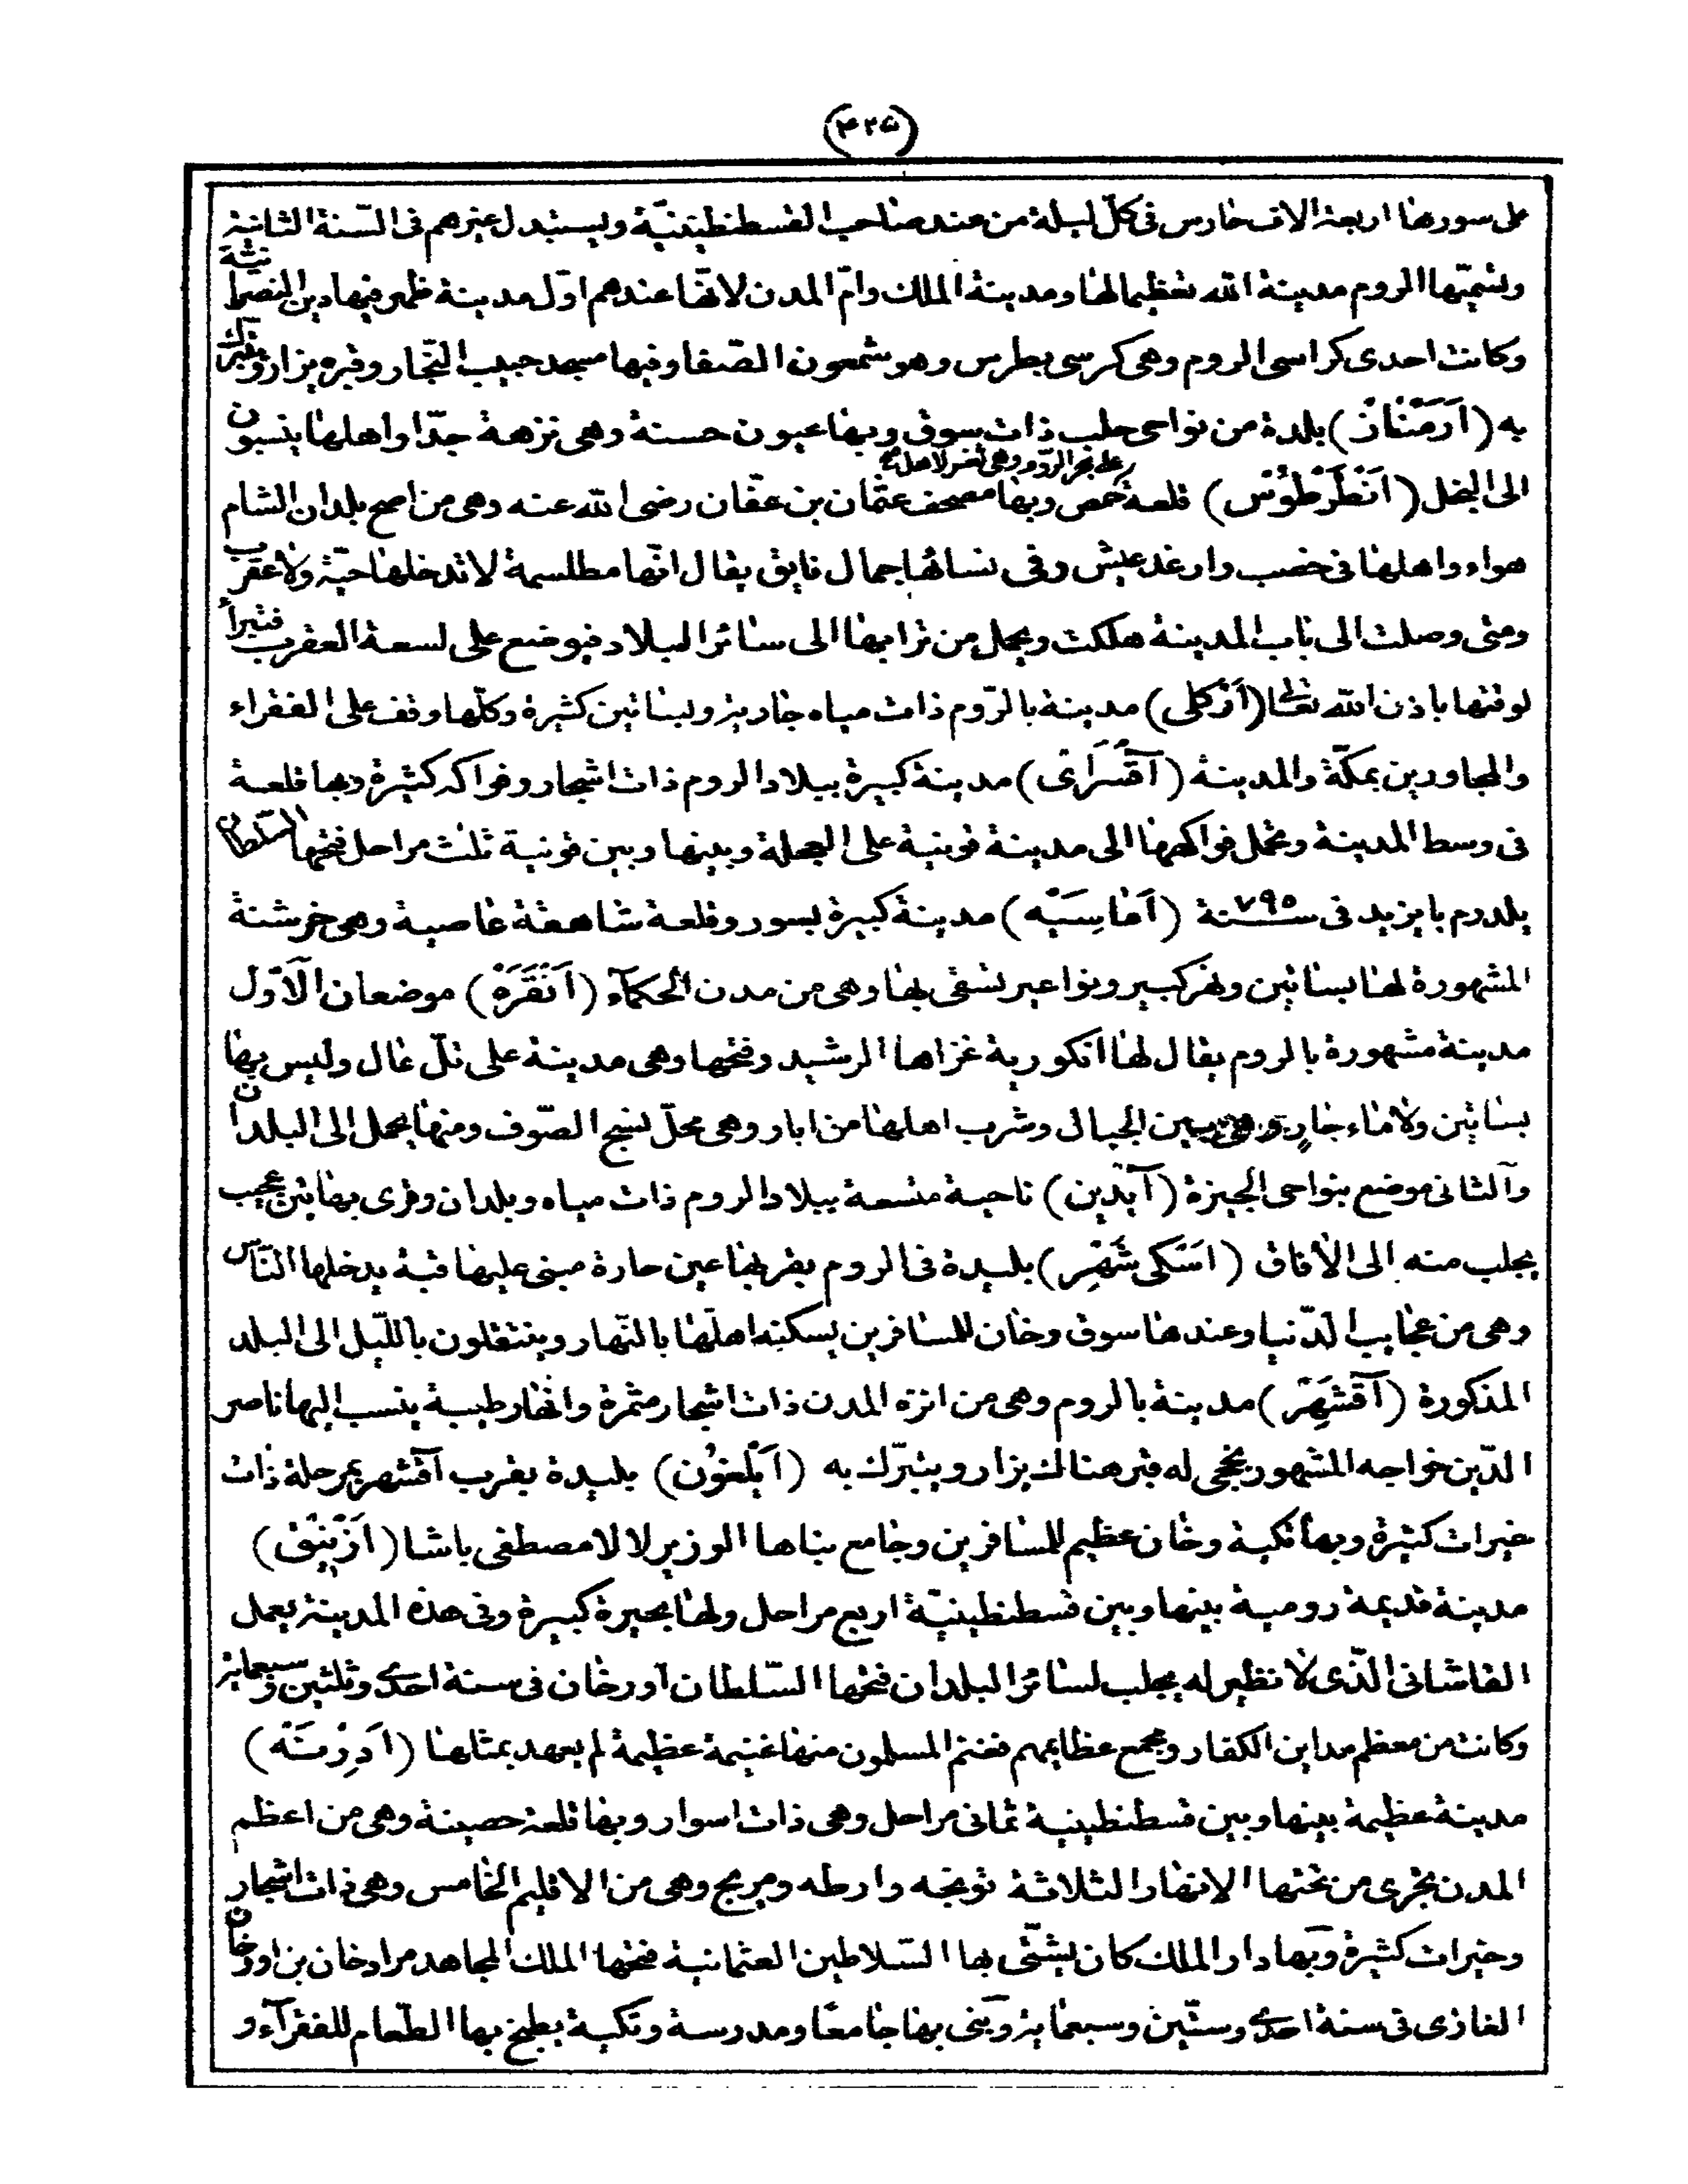 (٤٢٥)
على سورها اربعة الاف حارس فى كلّ ليلة من عند صاحب القسطنطينيّة ويستبدل غيرهم فى السّنة الثانية
وتسمّيها الروم مدينة الله تعظيما لها ومدينة الملك وامّ المدن لانّها عندهم اوّل مدينة ظهر فيها دين النصرانية
وكانت احدى كراسى الروم وهى كرسى بطرس وهو شمعون الصّفا وفيها مسجد حبيب النّجار وقبره يزار ويتبرّك
به (اَرمَنَازْ) بلدة من نواحى حلب ذات سوق وبها عيون حسنة وهى نزهة جدّا واهلها ينسبون
الى البخل (اَنْطَرْطُوْسْ) قلعة على بحر الرّوم وهى ثغر لاهل حمص وبها مصحف عثمان بن عفّان رضى الله عنه وهى من اصح بلدان الشام
هواء واهلها فى خصب وارغد عيش وفى نسائها جمال فايق يقال انّها مطلسمة لا تدخلها حيّة ولا عقرب
ومتى وصلت الى باب المدينة هلكت ويحمل من ترابها الى سائر البلاد فيوضع على لسعة العقرب فتبرأ
لوقتها باذن الله تعالى (اَرْكلى) مدينة بالرّوم ذات مياه جارية وبساتين كثيرة وكلّها وقف على الفقراء
والمجاورين بمكّة والمدينة (آقْسَرَاى) مدينة كبيرة ببلاد الروم ذات اشجار وفواكه كثيرة وبها قلعة
فى وسط المدينة وتحمل فواكهها الى مدينة قونية على العجلة وبينها وبين قونية ثلث مراحل فتحها السلطان
يلدرم بايزيد فى سنة ٧٩٥ (اَمَاسِيَه) مدينة كبيرة بسور وقلعة شاهقة عاصية وهى خرشنة
المشهورة لها بساتين ونهر كبير ونواعير تسقى بها وهى من مدن الحكمآء (اَنْقَرَهْ) موضعان الآوّل
مدينة مشهورة بالروم يقال لها انكورية غزاها الرشيد وفتحها وهى مدينة على تلّ عال وليس بها
بساتين ولا ماء جارٍ وهى بين الجبال وشرب اهلها من ابار وهى محلّ نسج الصّوف ومنها يحمل الى البلدان
وآلثانى موضع بنواحى الجيزة (آيْدِين) ناحية متسعة ببلاد الروم ذات مياه وبلدان وقرى بها تين عجيب
يجلب منه الى الآفاق (اَسْكى شَهِرْ) بليدة فى الروم بقربها عين حارة مبنى عليها قبة يدخلها النّاس
وهى من عجايب الدّنيا وعندها سوق وخان للمسافرين يسكنه اهلها بالنّهار وينتقلون باللّيل الى البلد
المذكورة (آقْشَهِرْ) مدينة بالروم وهى من انزه المدن ذات اشجار مثمرة وانهار طيبة ينسب اليها ناصر
الدّين خواجه المشهور بحجى له قبر هنالك يزار ويتبرّك به (اَيْلغُون) بليدة بقرب آقشهر بمرحلة ذات
خيرات كثيرة وبها تكية وخان عظيم للمسافرين وجامع بناها الوزير لالا مصطفى باشا (اَزْنِيْق)
مدينة قديمة رومية بينها وبين قسطنطينيّة اربع مراحل ولها بحيرة كبيرة وفى هذه المدينة يعمل
القاشانى الّذى لا نظير له يجلب لسائر البلدان فتحها السّلطان اورخان فى سنة احدى وثلثين وسبعماية
وكانت من معظم مداين الكفار ومجمع عظايمهم فغنم المسلمون منها غنيمة عظيمة لم يعهد بمثلها (اَدِرْنَه)
مدينة عظيمة بينها وبين قسطنطينية ثمانى مراحل وهى ذات اسوار وبها قلعة حصينة وهى من اعظم
المدن يجرى من تحتها الانهار الثلاثة تونجه وارطه ومريج وهى من الاقليم الخامس وهى ذات اشجار
وخيرات كثيرة وبها دار الملك كان يشتّى بها السّلاطين العثمانية فتحها الملك المجاهد مراد خان بن اورخان
الغازى فى سنة احدى وستّين وسبعماية وبنى بها جامعًا ومدرسة وتكية يطبخ بها الطّعام للفقرآء و